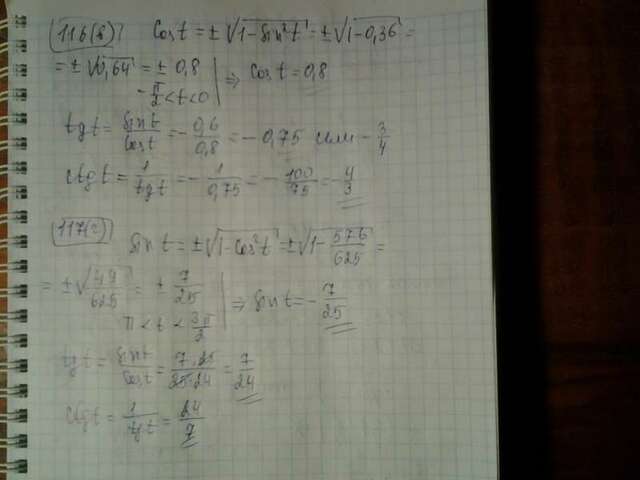 116(б) cos t = ±√1-sin²t = ±√1-0,36 =
= ±√0,64 = ±0,8 | ⇒ cos t = 0,8
-π/2 < t < 0
tg t = sin t/cos t = -0,6/0,8 = -0,75 или -3/4
ctg t = 1/tg t = -1/0,75 = -100/75 = -4/3
117(г) sin t = ±√1-cos²t = ±√1-576/625 =
= ±√49/625 = ±7/25 | ⇒ sin t = -7/25
π < t < 3π/2
tg t = sin t/cos t = 7·25/25·24 = 7/24
ctg t = 1/tg t = 24/7